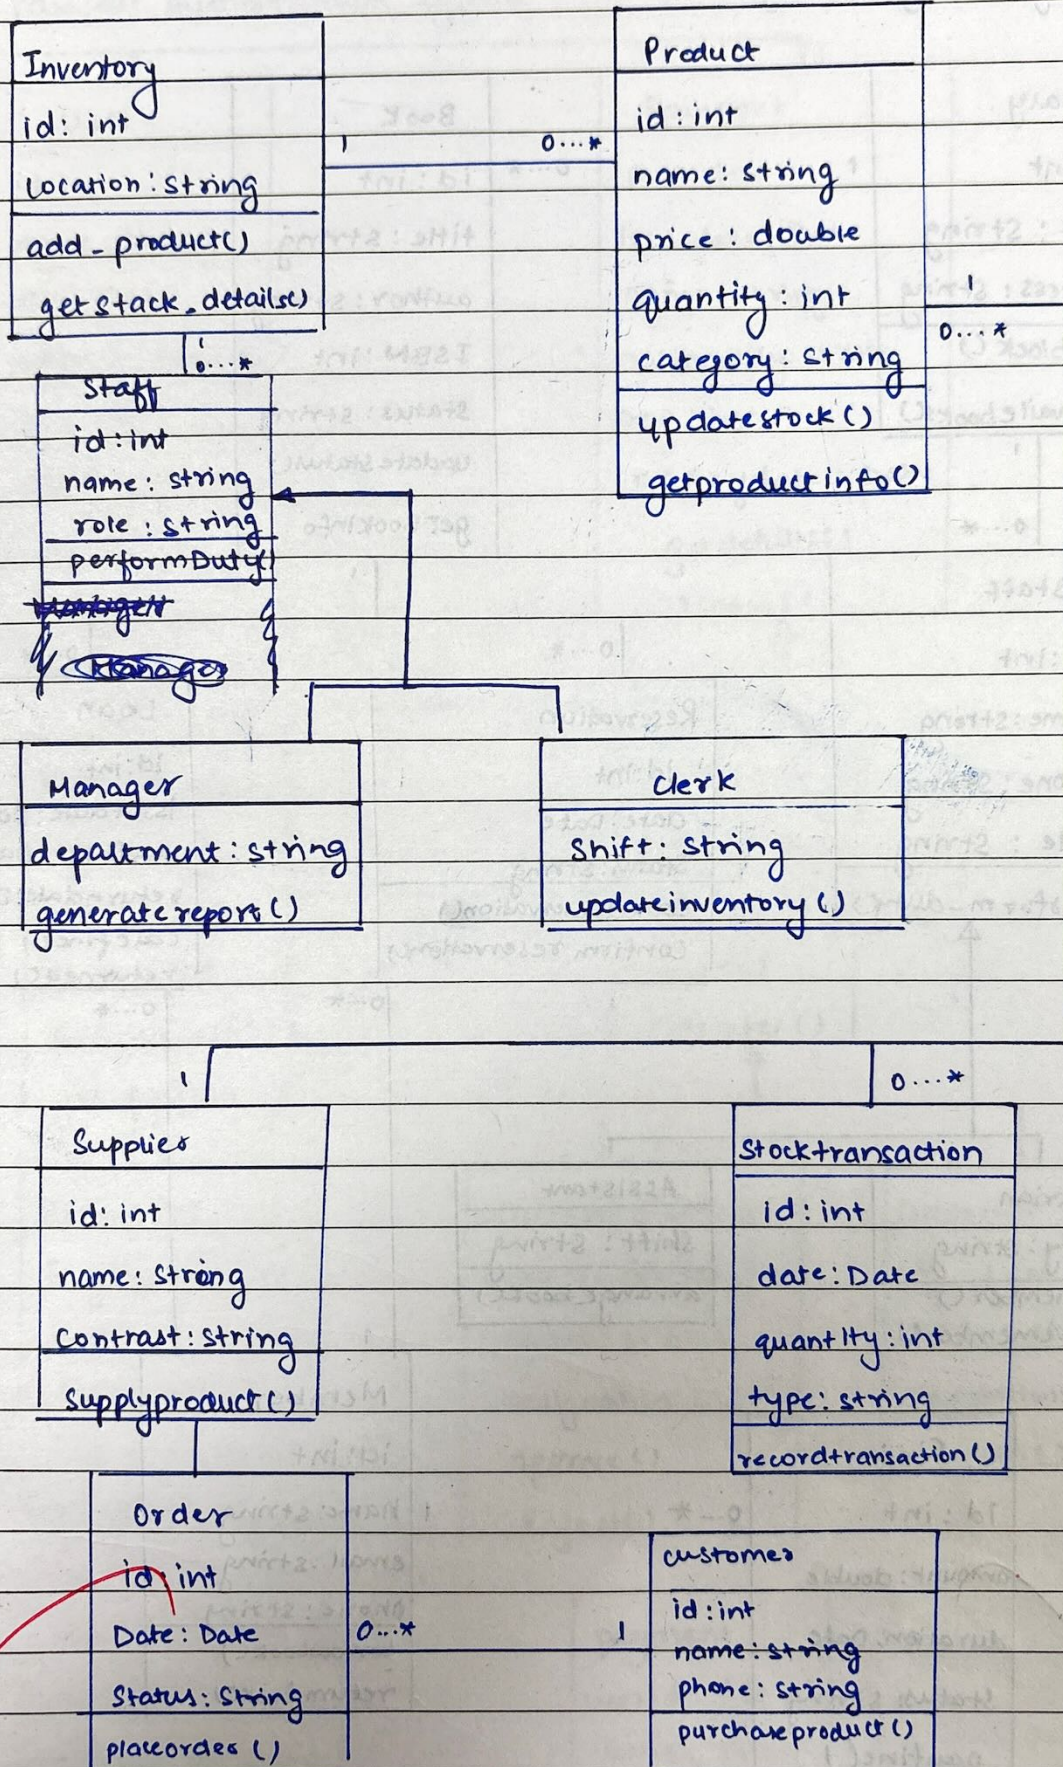 Inventory
id: int
location: string
add_product()
getstack_details()
1
0...*
Product
id: int
name: string
price: double
quantity: int
category: string
updatestock()
getproductinfo()
1
0...*
1
0...*
Staff
id: int
name: string
role: string
performDuty()
Manager
department: string
generatereport()
Clerk
Shift: string
updateinventory()
1
0...*
Supplier
id: int
name: string
contrast: string
supplyproduct()
Stocktransaction
id: int
date: Date
quantity: int
type: string
recordtransaction()
Order
id: int
Date: Date
Status: String
placeorder()
0...*
1
customer
id: int
name: string
phone: string
purchaseproduct()